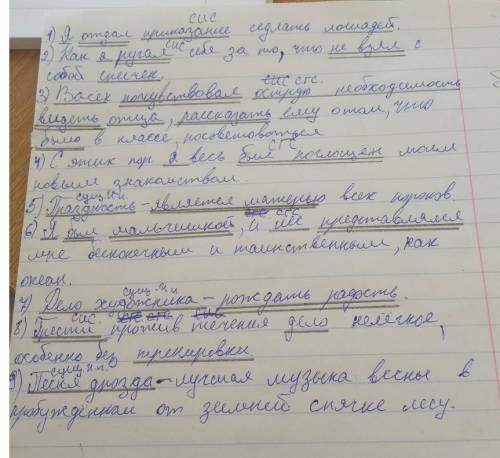 СИС
1) Я отдал приказание седлать лошадей.
СИС
2) Как я ругал себя за то, что не взял с
собой спичек.
СИС СГС
3) Васёк почувствовал острую необходимость
видеть отца, рассказать ему о том, что
было в классе, посоветоваться
СГС
4) С этих пор я весь был поглощён моим
новым знакомством.
сущ. И.п.
5) Праздность - является матерью всех пороков.
СИС СГС
6) Я был мальчишкой, и лес представлялся
мне бесконечным и таинственным, как
океан.
сущ. И.п
7) Дело художника - рождать радость.
СИС СИС СГС СИС
8) Грести против течения дело нелёгкое,
особенно без тренировки
сущ. И.п.
9) Песня дрозда - лучшая музыка весны в
пробуждённом от зимней спячке лесу.